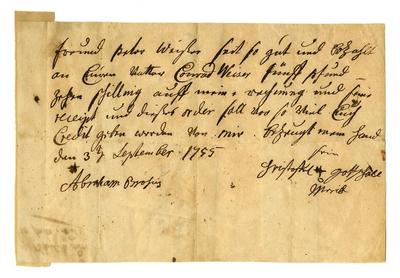 freund Peter Weiser seit so gut und bezahlt
an Euren Vatter Conrad Weiser fünff pfund
zehen schilling auff meine rechnung und seine
receipt und dießes order soll vor so viel Euch
Credit geben werden von mir. bezeugt mein hand
den 3 September 1755
Abraham